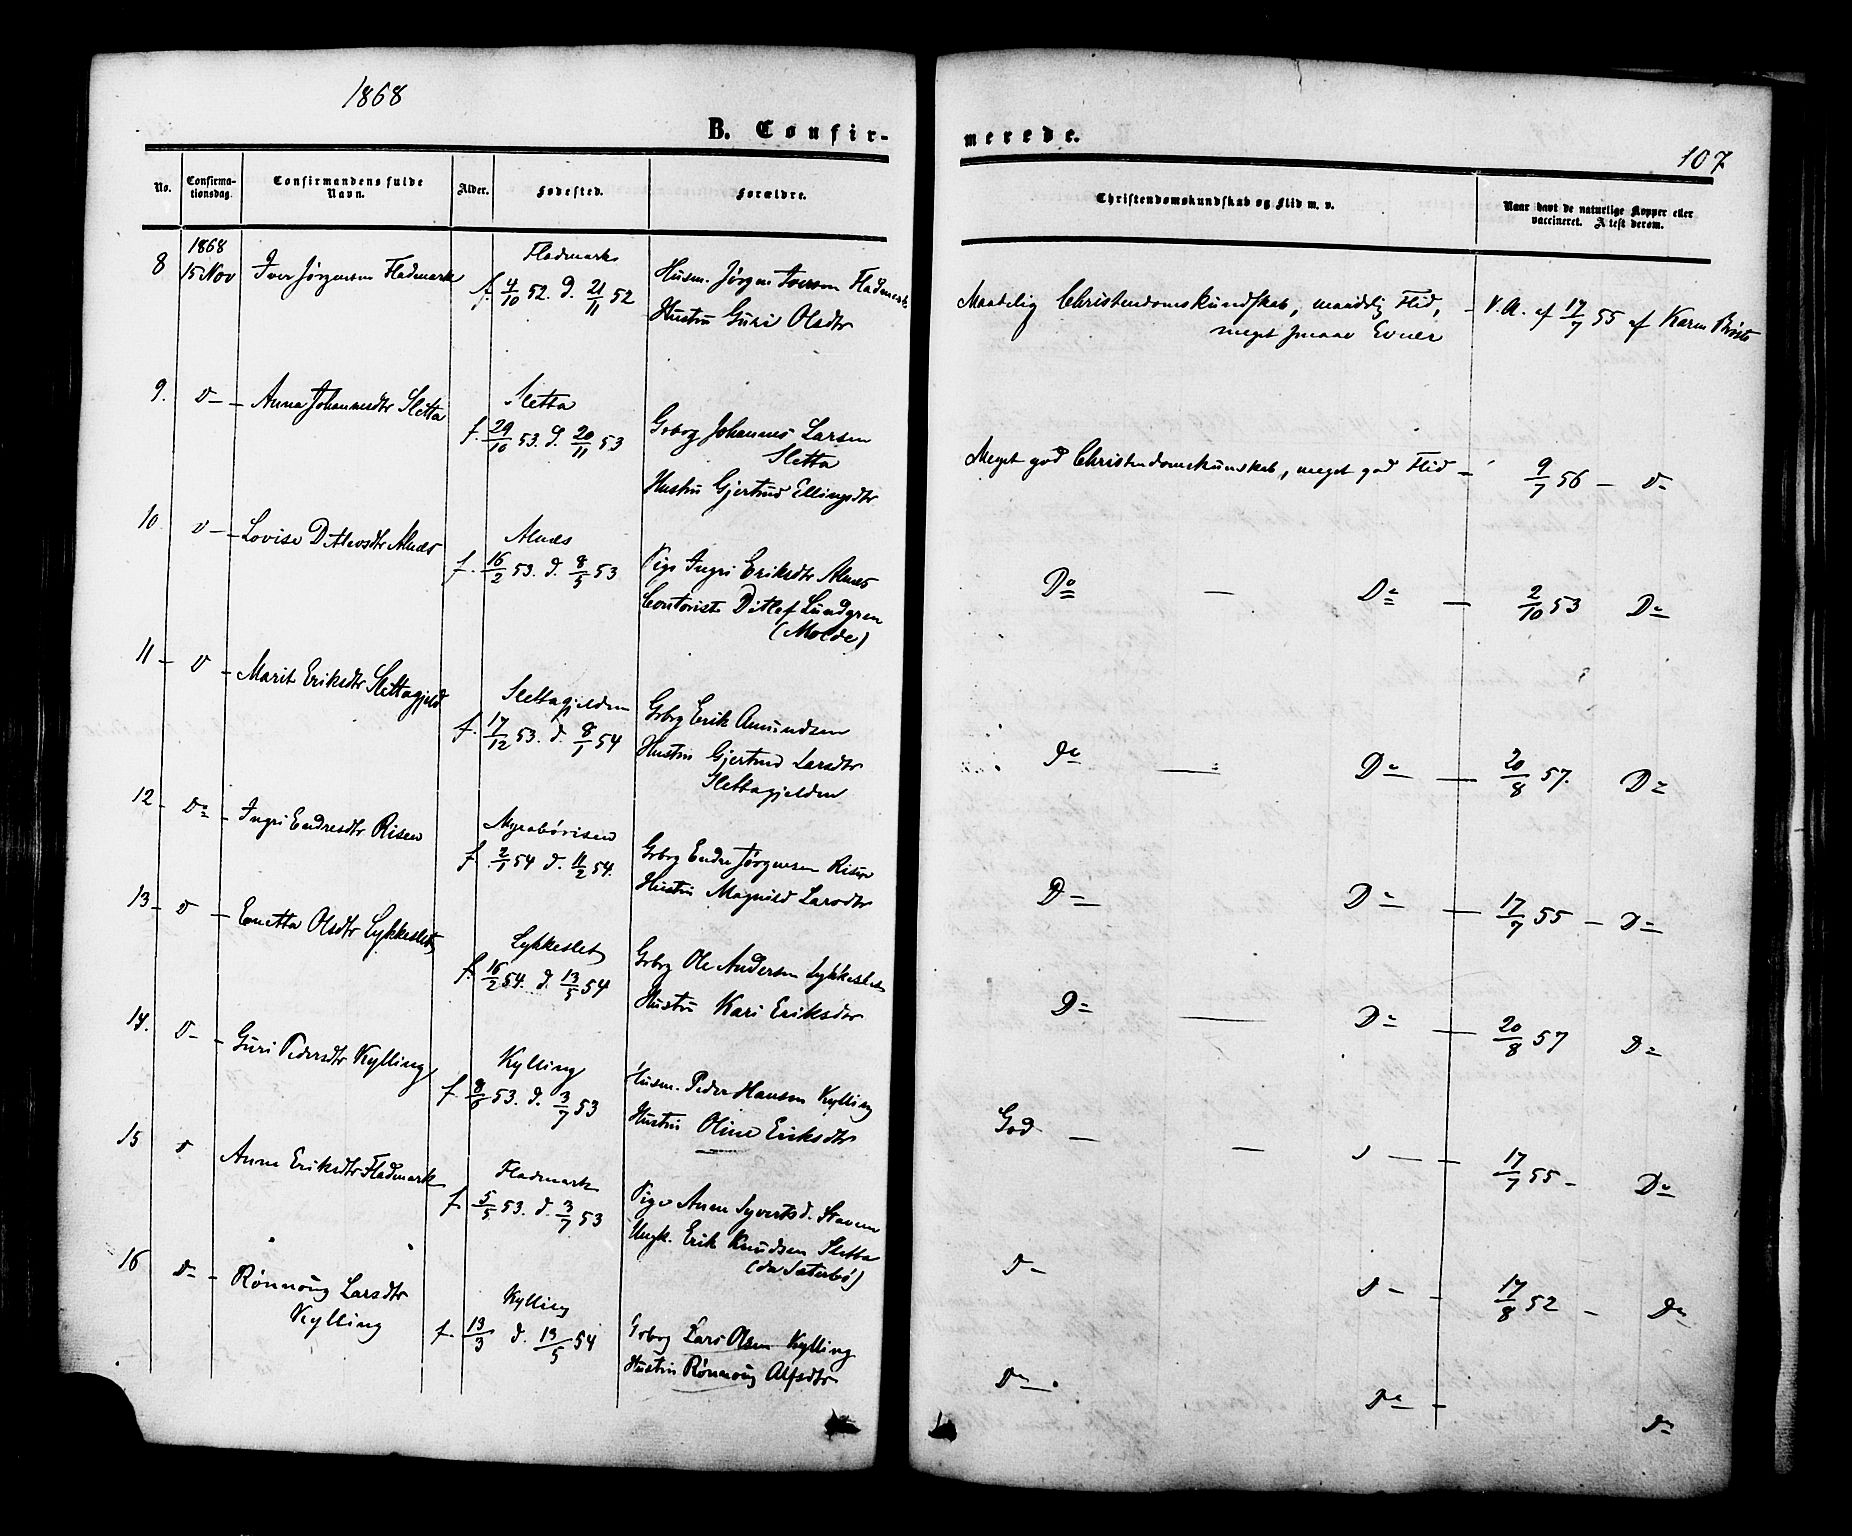 1868
B. Confir-
merede.
107
No.
Confirma-
tionsdag.
Confirmandens fulde
Navn.
Alder.
Fødested.
Forældre.
Christendomskundskab og Flid m. v.
Naar havt de naturlige Kopper eller
vaccineret. Attest derom.
8 1868 15 Nov Iver Jørgensen Fladmark
Fladmark
f. 4/10 52. d. 21/11 52
Husm. Jørgen Iversen Fladmark
Hustru Guri Olsdtr
Maadelig Christendomskundskab, maadelig Flid,
meget smaae Evner
- V.A. af 17/7 55 af Karen
9. D- - Anna Johannesdtr Sletta
Sletta
f. 29/10 53. d. 20/11 53
Grbrg Johannes Larsen
Sletta
Hustru Gjertrud Ellingsdtr
Meget god Christendomskunskab, meget god Flid -
9/7 56 - D-
10 D- - Lovise Ditlevsdtr Alnæs
Alnæs
f. 16/2 53. d. 8/5 53
Pige Ingri Eriksdtr Alnæs
Contorist Ditlef Lundgren
(Molde)
Do - Do - 2/10 53 Do
11 - D - Marit Eriksdtr Slettagjeld
Slettagjelden
f. 17/12 53. d. 8/1 54
Grbrg Erik Amundsen
Hustru Gjertrud Larsdtr
Slettagjelden
do - Do - 20/8 57. Do
12 - Do - Ingri Endresdtr Risen
Myrabørisen
f. 2/1 54 d. 11/2 54.
Grbrg Endre Jørgensen Risen
Hustru Magnild Larsdtr
Do Do - 17/7 55 - Do
13 - D - Enetta Olsdtr Lykkeslet
Lykkeslet
f. 16/2 54. d. 13/5 54
Grbrg Ole Andersen Lykkeslet
Hustru Kari Eriksdtr
Do - Do - 20/8 57 Do
14. D- - Guri Pedersdtr Kylling
Kylling
f. 8/6 53. d. 3/7 53
Husm. Peder Hansen Kylling
Hustru Oline Eriksdtr
God - - - 17/7 55 - Do
15 D Anne Eriksdtr Fladmark
Fladmark
f. 5/5 53. d. 3/7 53
Pige Anne Syvertsd. Staven
Ungk. Erik Knudsen Sletta
(da Sæterbø)
D- D- - 17/8 52 - Do
16 D- - Rønnoug Larsdtr
Kylling
Kylling
f. 13/3 d. 13/5 54
Grbrg Lars Olsen Kylling
Hustru Rønnoug Alfsdtr
Do Do - Do